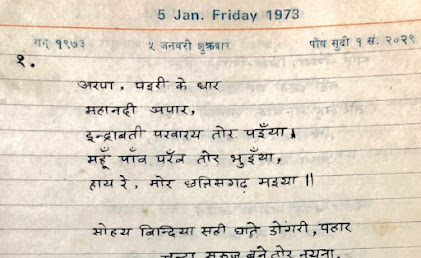 5 Jan. Friday 1973
सन् १९७३ ५ जनवरी शुक्रवार पौष सुदी १ सं. २०२९
१.
अरपा, पइरी के धार
महानदी अपार,
इन्द्राबती पखारय तोर पइँया,
महूँ पाँव परँव तोर भुइँया,
हाय रे, मोर छत्तिसगढ़ मइया ॥
सोहय बिन्दिया सही घाते डोंगरी, पहार
चन्दा सुरुज बने तोर नयना,